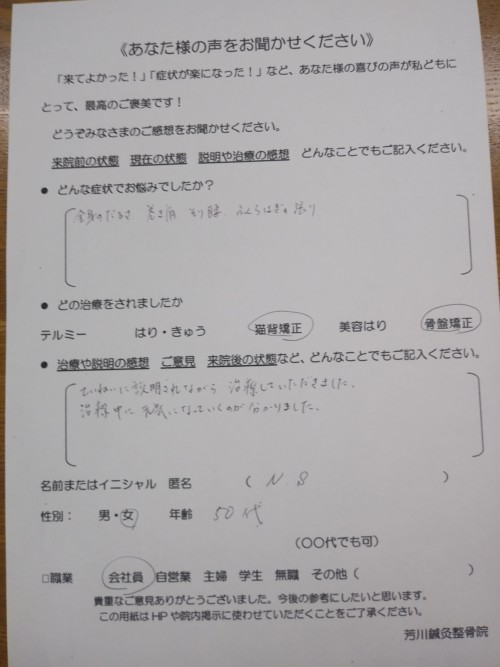 《あなた様の声をお聞かせください》
「来てよかった！」「症状が楽になった！」など、あなた様の喜びの声が私どもに
とって、最高のご褒美です！
どうぞみなさまのご感想をお聞かせください。
来院前の状態 現在の状態 説明や治療の感想 どんなことでもご記入ください。
● どんな症状でお悩みでしたか？
全身のだるさ 巻き肩 反り腰 ふくらはぎの張り
● どの治療をされましたか
テルミー はり・きゅう 猫背矯正 美容はり 骨盤矯正
● 治療や説明の感想 ご意見 来院後の状態など、どんなことでもご記入ください。
ていねいに説明されながら 治療していただきました。
治療中に 元気になっていくのが分かりました。
名前またはイニシャル 匿名 ( N.S )
性別： 男・女 年齢 50代
(〇〇代でも可)
□職業 会社員 自営業 主婦 学生 無職 その他 ( )
貴重なご意見ありがとうございました。今後の参考にしたいと思います。
この用紙はHPや院内掲示に使わせていただくことをご了承ください。
芳川鍼灸整骨院